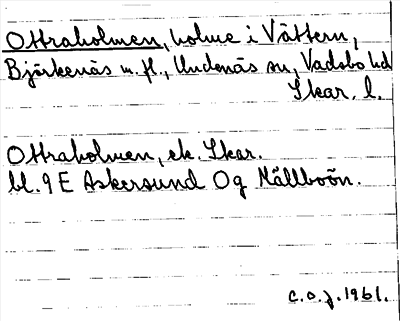 Ottraholmen, holme i Vättern,
Björkenäs m.fl., Undenäs sn, Vadsbo hd
Skar. l.
Ottraholmen, ek. Skar.
bl. 9 E Askersund Og Mällboön.
C.O.J. 1961.